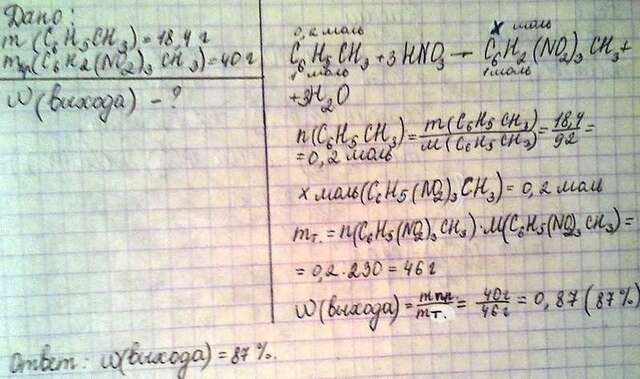 Дано:
m (C6H5CH3) = 18,4 г
mпр(C6H2(NO2)3CH3) = 40 г
W(выхода) - ?
0,2 моль x моль
C6H5CH3 + 3HNO3 → C6H2(NO2)3CH3 +
1 моль 1 моль
+3H2O
n(C6H5CH3) = m(C6H5CH3) / M(C6H5CH3) = 18,4 / 92 =
= 0,2 моль
x моль(C6H5(NO2)3CH3) = 0,2 моль
mт. = n(C6H5(NO2)3CH3) · M(C6H5(NO2)3CH3) =
= 0,2 · 230 = 46 г
W(выхода) = mпр. / mт. = 40г / 46г = 0,87 (87%)
Ответ: W(выхода) = 87%.